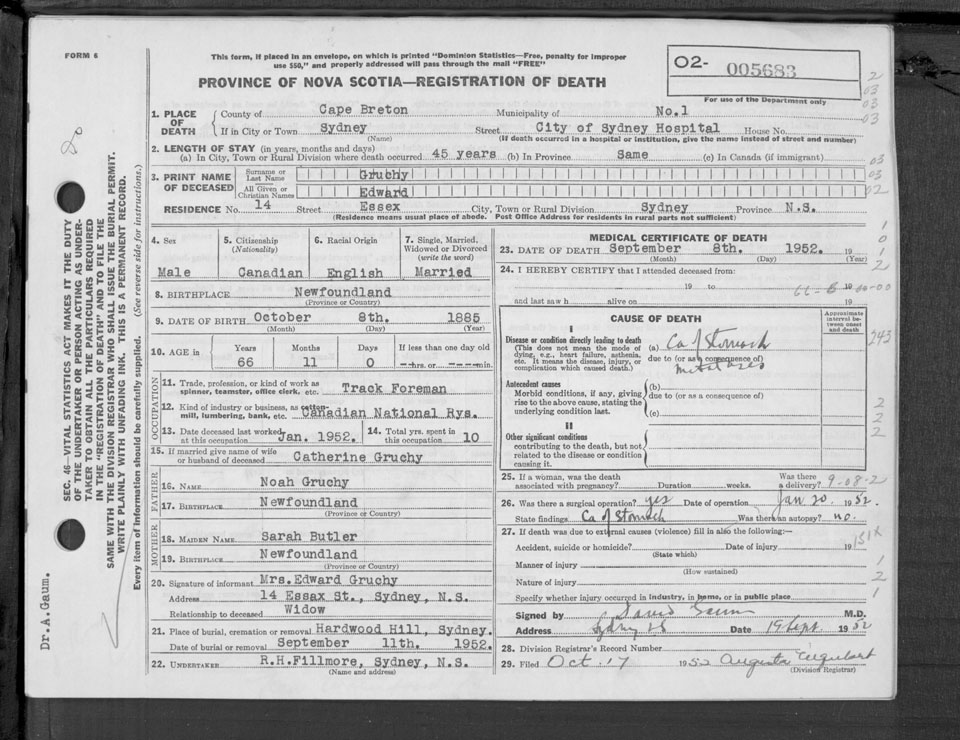 FORM 6
This form, if placed in an envelope, on which is printed "Dominion Statistics—Free, penalty for improper
use $50," and properly addressed will pass through the mail "FREE"
PROVINCE OF NOVA SCOTIA—REGISTRATION OF DEATH
O2- 005683
For use of the Department only
1. PLACE OF DEATH County of Cape Breton Municipality of No.1
If in City or Town Sydney Street City of Sydney Hospital House No.
(Name) (If death occurred in a hospital or institution, give the name instead of street and number)
2. LENGTH OF STAY (in years, months and days)
(a) In City, Town or Rural Division where death occurred 45 years (b) In Province Same (c) In Canada (if immigrant)
3. PRINT NAME OF DECEASED Surname or Last Name Gruchy
All Given or Christian Names Edward
RESIDENCE No. 14 Street Essex City, Town or Rural Division Sydney Province N.S.
(Residence means usual place of abode. Post Office Address for residents in rural parts not sufficient)
4. Sex 5. Citizenship (Nationality) 6. Racial Origin 7. Single, Married, Widowed or Divorced (write the word)
Male Canadian English Married
8. BIRTHPLACE Newfoundland
(Province or Country)
9. DATE OF BIRTH October 8th. 1885
(Month) (Day) (Year)
10. AGE in Years Months Days If less than one day old
66 11 0 --hrs. or ----min.
OCCUPATION
11. Trade, profession or kind of work as
spinner, teamster, office clerk, etc. Track Foreman
12. Kind of industry or business, as cotton-
mill, lumbering, bank, etc. Canadian National Rys.
13. Date deceased last worked at this occupation Jan. 1952. 14. Total yrs. spent in this occupation 10
15. If married give name of wife
or husband of deceased Catherine Gruchy
FATHER
16. NAME Noah Gruchy
17. BIRTHPLACE Newfoundland
(Province or Country)
MOTHER
18. MAIDEN NAME Sarah Butler
19. BIRTHPLACE Newfoundland
(Province or Country)
20. Signature of informant Mrs.Edward Gruchy
Address 14 Essax St., Sydney, N.S.
Relationship to deceased Widow
21. Place of burial, cremation or removal Hardwood Hill, Sydney.
Date of burial or removal September 11th. 1952.
22. UNDERTAKER R.H.Fillmore, Sydney, N.S.
(Name and address)
MEDICAL CERTIFICATE OF DEATH
23. DATE OF DEATH September 8th. 1952. 19
(Month) (Day) (Year)
24. I HEREBY CERTIFY that I attended deceased from:
19 to 19
and last saw h alive on 19
CAUSE OF DEATH
Approximate interval between onset and death
I
Disease or condition directly leading to death (a) Ca of Stomach
(This does not mean the mode of
dying, e.g., heart failure, asthenia,
etc. It means the disease, injury, or
complication which caused death.)
due to (or as a consequence of)
Antecedent causes (b)
Morbid conditions, if any, giving due to (or as a consequence of)
rise to the above cause, stating the
underlying condition last. (c)
II
Other significant conditions
contributing to the death, but not
related to the disease or condition
causing it.
25. If a woman, was the death Was there
associated with pregnancy? Duration weeks. a delivery? 9-08-2
26. Was there a surgical operation? yes Date of operation Jan 20 1952.
State findings Ca of Stomach Was there an autopsy? no.
27. If death was due to external causes (violence) fill in also the following:—
Accident, suicide or homicide? Date of injury 19
(State which)
Manner of injury
(How sustained)
Nature of injury
Specify whether injury occurred in industry, in home, or in public place
Signed by David Gaum M.D.
Address Sydney NS Date 19 Sept. 1952
28. Division Registrar's Record Number
29. Filed Oct. 17 1952 Augusta Urquhart
(Division Registrar)
2
03
03
03
03
03
02
1
0
1
2
243
2
2
2
151X
1
2
1
SEC. 46—VITAL STATISTICS ACT MAKES IT THE DUTY
OF THE UNDERTAKER OR PERSON ACTING AS UNDER-
TAKER TO OBTAIN ALL THE PARTICULARS REQUIRED
IN THE "REGISTRATION OF DEATH" AND TO FILE THE
SAME WITH THE DIVISION REGISTRAR WHO SHALL ISSUE THE BURIAL PERMIT.
WRITE PLAINLY WITH UNFADING INK. THIS IS A PERMANENT RECORD.
Every item of information should be carefully supplied. (See reverse side for instructions.)
Dr.A.Gaum.